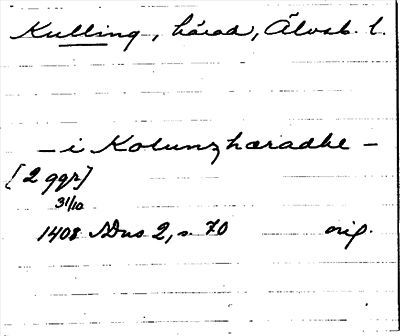 Kulling, härad, Älvsb. l.
— i Kolunzhæradhe —
[2 ggr]
31/10
1408 NDns 2, s. 70 orig.